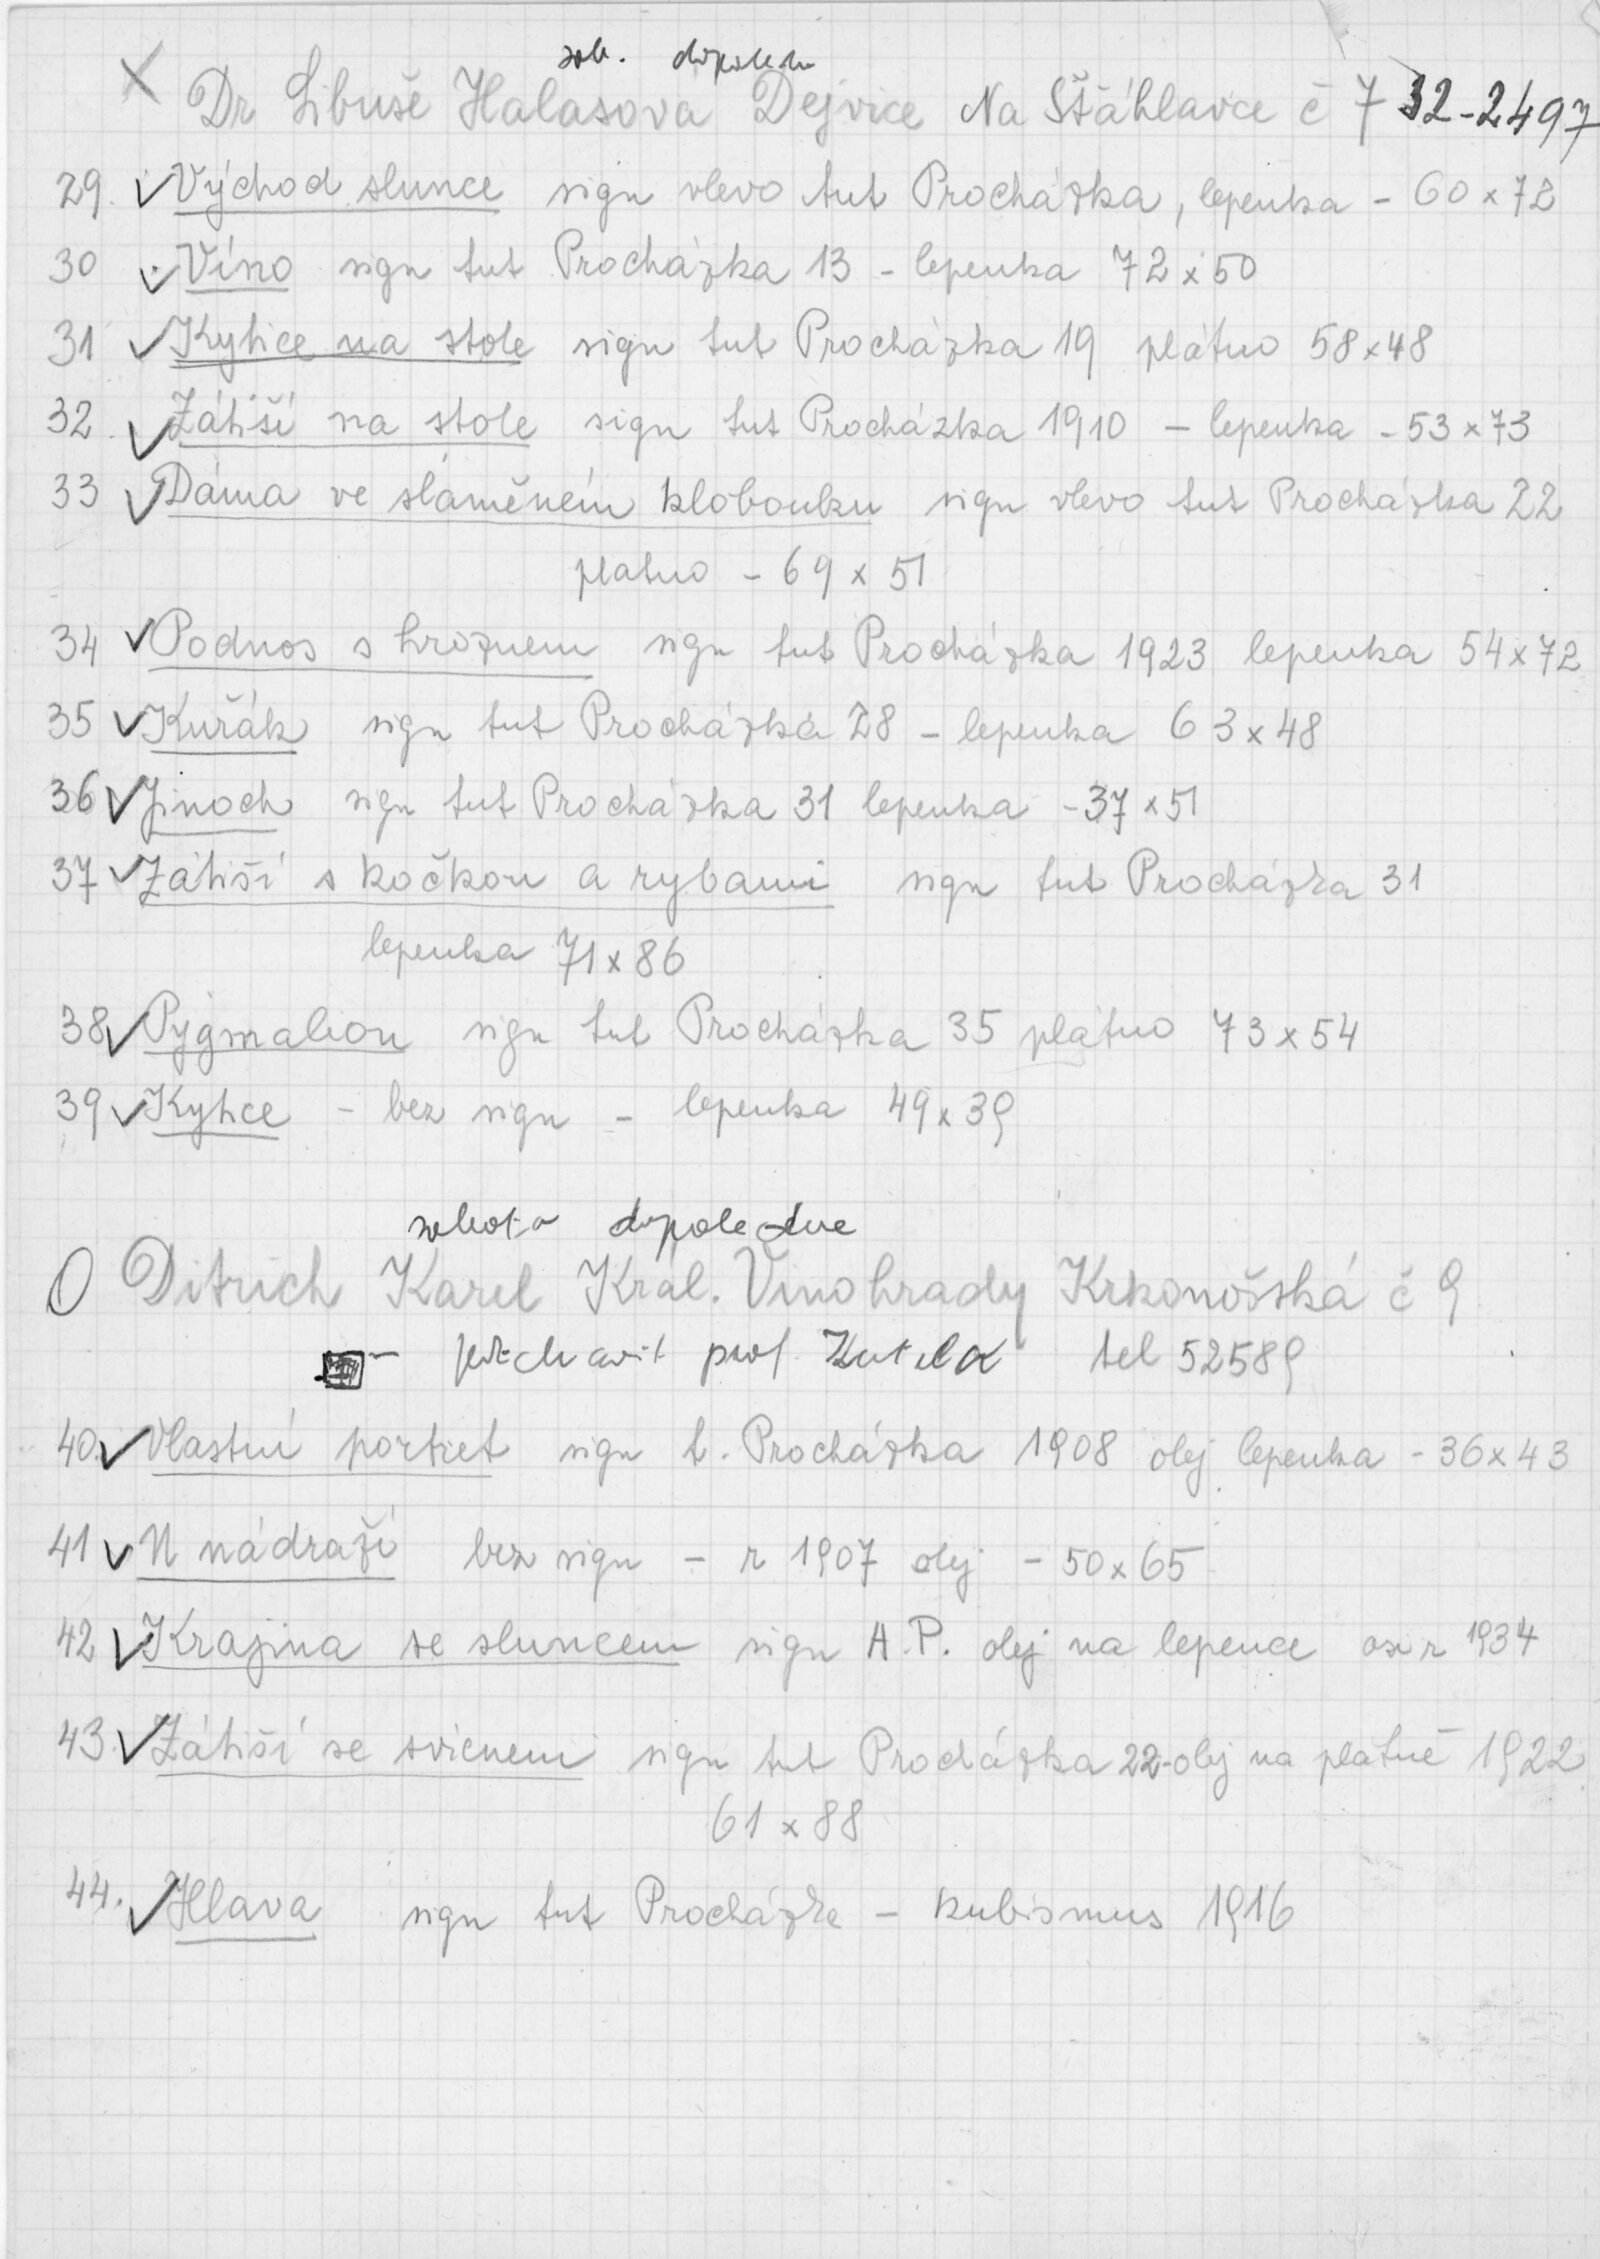 sob. dopoledn
X Dr Libuše Halasova Dejvice Na Šťáhlavce č 7 32-2497
29. ✓ Východ slunce sign vlevo tut Procházka, lepenka - 60 x 72
30 ✓ Víno sign tut Procházka 13 - lepenka 72 x 50
31 ✓ Kytice na stole sign tut Procházka 19 plátno 58 x 48
32 ✓ Zátiší na stole sign tut Procházka 1910 - lepenka - 53 x 73
33 ✓ Dáma ve slaměném klobouku sign vlevo tut Procházka 22
platno - 69 x 51
34 ✓ Podnos s hroznem sign tut Procházka 1923 lepenka 54 x 72
35 ✓ Kuřák sign tut Procházka 28 - lepenka 63 x 48
36 ✓ Jinoch sign tut Procházka 31 lepenka - 37 x 51
37 ✓ Zátiší s kočkou a rybami sign tut Procházka 31
lepenka 71 x 86
38 ✓ Pygmalion sign tut Procházka 35 plátno 73 x 54
39 ✓ Kytice - bez sign - lepenka 49 x 39
sobota dopoledne
O Ditrich Karel Král. Vinohrady Krkonošská č 9
- prof Kutala tel 52589
40. ✓ Vlastní portret sign t. Procházka 1908 olej lepenka - 36 x 43
41 ✓ U nádraží bez sign - r 1907 olej - 50 x 65
42 ✓ Krajina se sluncem sign A.P. olej na lepence asi r 1934
43. ✓ Zátiší se svícnem sign tut Procházka 22-olej na plátně 1922
61 x 88
44. ✓ Hlava sign tut Procházka - kubismus 1916